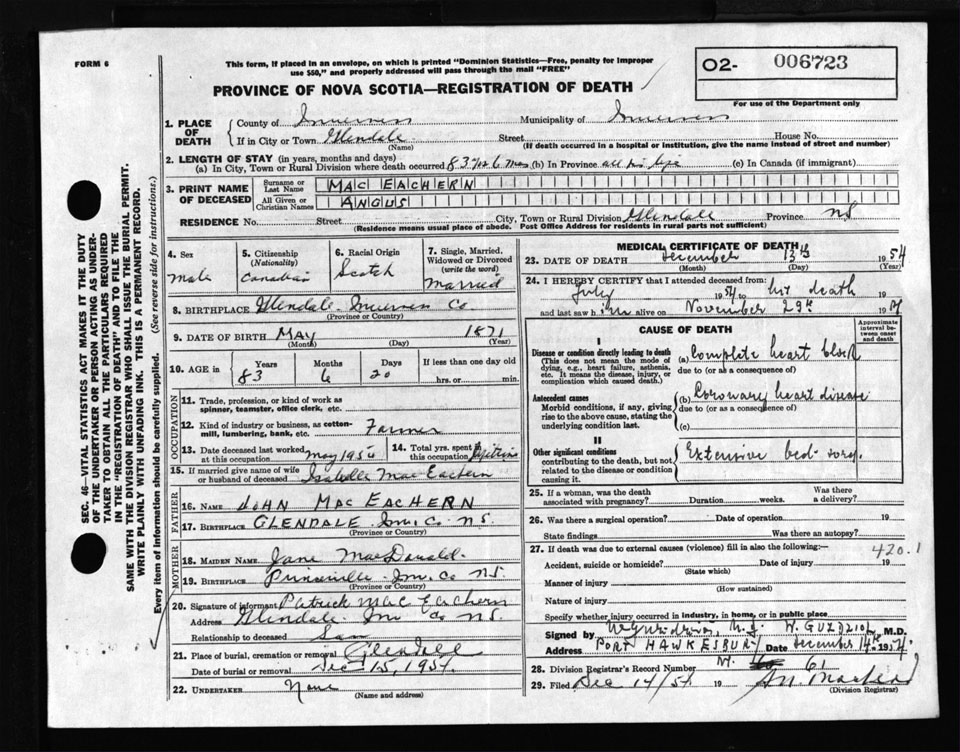 FORM 6
This form, if placed in an envelope, on which is printed "Dominion Statistics—Free, penalty for improper
use $50," and properly addressed will pass through the mail "FREE"
PROVINCE OF NOVA SCOTIA—REGISTRATION OF DEATH
02- 006723
For use of the Department only
SEC. 46—VITAL STATISTICS ACT MAKES IT THE DUTY
OF THE UNDERTAKER OR PERSON ACTING AS UNDER-
TAKER TO OBTAIN ALL THE PARTICULARS REQUIRED
IN THE "REGISTRATION OF DEATH" AND TO FILE THE
SAME WITH THE DIVISION REGISTRAR WHO SHALL ISSUE THE BURIAL PERMIT.
WRITE PLAINLY WITH UNFADING INK. THIS IS A PERMANENT RECORD.
Every item of information should be carefully supplied. (See reverse side for instructions.)
1. PLACE OF DEATH
County of Inverness Municipality of Inverness
If in City or Town Glendale Street House No.
(Name) (If death occurred in a hospital or institution, give the name instead of street and number)
2. LENGTH OF STAY (in years, months and days)
(a) In City, Town or Rural Division where death occurred 83 yrs 6 mos (b) In Province all his life (c) In Canada (if immigrant)
3. PRINT NAME OF DECEASED
Surname or Last Name MAC EACHERN
All Given or Christian Names ANGUS
RESIDENCE No. Street City, Town or Rural Division Glendale Province NS
(Residence means usual place of abode. Post Office Address for residents in rural parts not sufficient)
4. Sex Male
5. Citizenship (Nationality) Canadian
6. Racial Origin Scotch
7. Single, Married, Widowed or Divorced (write the word) Married
8. BIRTHPLACE Glendale Inverness Co.
(Province or Country)
9. DATE OF BIRTH May 1871
(Month) (Day) (Year)
10. AGE IN Years 83 Months 6 Days 20 If less than one day old hrs. or min.
OCCUPATION
11. Trade, profession, or kind of work as
spinner, teamster, office clerk, etc.
12. Kind of industry or business, as cotton-
mill, lumbering, bank, etc. Farmer
13. Date deceased last worked at this occupation May 1954
14. Total yrs. spent in this occupation lifetime
15. If married give name of wife
or husband of deceased Isabelle MacEachern
FATHER
16. NAME JOHN MAC EACHERN
17. BIRTHPLACE GLENDALE Inv. Co. NS.
(Province or Country)
MOTHER
18. MAIDEN NAME Jane MacDonald
19. BIRTHPLACE Princeville Inv. Co NS.
(Province or Country)
20. Signature of informant Patrick Mac Eachern
Address Glendale Inv Co NS.
Relationship to deceased Son
21. Place of burial, cremation or removal Glendale
Date of burial or removal Dec 15, 1954
22. UNDERTAKER None
(Name and address)
MEDICAL CERTIFICATE OF DEATH
23. DATE OF DEATH December 13th 1954
(Month) (Day) (Year)
24. I HEREBY CERTIFY that I attended deceased from:
July 1954 to his death 19
and last saw him alive on November 29th 1954
CAUSE OF DEATH
Approximate interval between onset and death
I
Disease or condition directly leading to death
(This does not mean the mode of
dying, e.g., heart failure, asthenia,
etc. It means the disease, injury, or
complication which caused death.)
(a) Complete heart block
due to (or as a consequence of)
Antecedent causes
Morbid conditions, if any, giving
rise to the above cause, stating the
underlying condition last.
(b) Coronary heart disease
due to (or as a consequence of)
(c)
II
Other significant conditions
contributing to the death, but not
related to the disease or condition
causing it.
Extensive bed-sores.
25. If a woman, was the death associated with pregnancy? Duration weeks. Was there a delivery?
26. Was there a surgical operation? Date of operation 19
State findings Was there an autopsy?
27. If death was due to external causes (violence) fill in also the following: 420.1
Accident, suicide or homicide? Date of injury 19
(State which)
Manner of injury
(How sustained)
Nature of injury
Specify whether injury occurred in industry, in home, or in public place
Signed by W. GUZDZIOL M.D.
Address PORT HAWKESBURY Date December 14th 1954
28. Division Registrar's Record Number 61
29. Filed Dec 14/54 19
(Division Registrar)